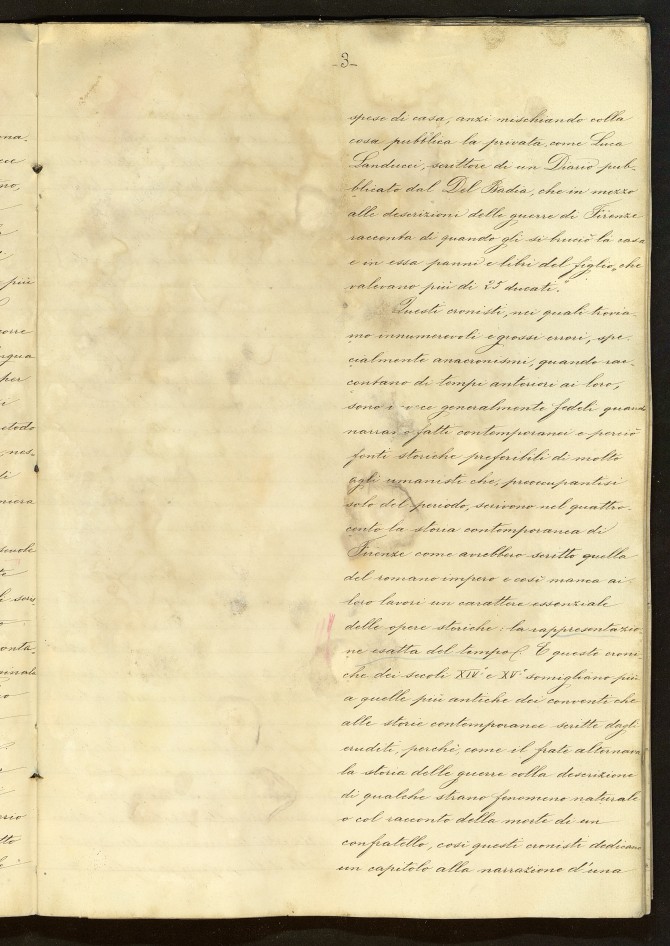 -3-
spese di casa, anzi mischiando colla
cosa pubblica la privata, come Luca
Landucci, scrittore di un Diario pub-
blicato dal Del Badia, che in mezzo
alle descrizioni delle guerre di Firenze
racconta di quando gli si bruciò la casa
e in essa panni e libri del figlio, che
valevano più di 25 ducati.
Questi cronisti, nei quali trovia-
mo innumerevoli e grossi errori, spe-
cialmente anacronismi, quando rac-
contano di tempi anteriori ai loro,
sono generalmente fedeli quando
narrano fatti contemporanei e perciò
fonti storiche preferibili di molto
agli umanisti che, preoccupantisi
solo del periodo, scrivono nel quattro-
cento la storia contemporanea di
Firenze come avrebbero scritto quella
del romano impero e così manca ai
loro lavori un carattere essenziale
delle opere storiche: la rappresentazio-
ne esatta del tempo. E queste crona-
che dei secoli XIV° e XV° somigliano più
a quelle più antiche dei conventi che
alle storie contemporanee scritte dagli
eruditi, perchè, come il frate alternava
la storia delle guerre colla descrizione
di qualche strano fenomeno naturale
o col racconto della morte di un
confratello, così questi cronisti dedicano
un capitolo alla narrazione d'una